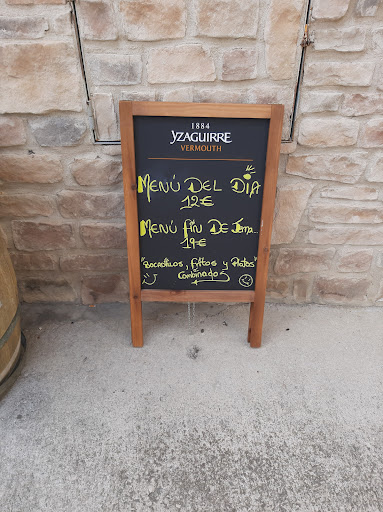 1884
YZAGUIRRE
VERMOUTH
MENÚ DEL DÍA
12€
MENÚ FIN DE
19€
"BOCADILLOS, FRITOS Y PLATOS"
COMBINADOS